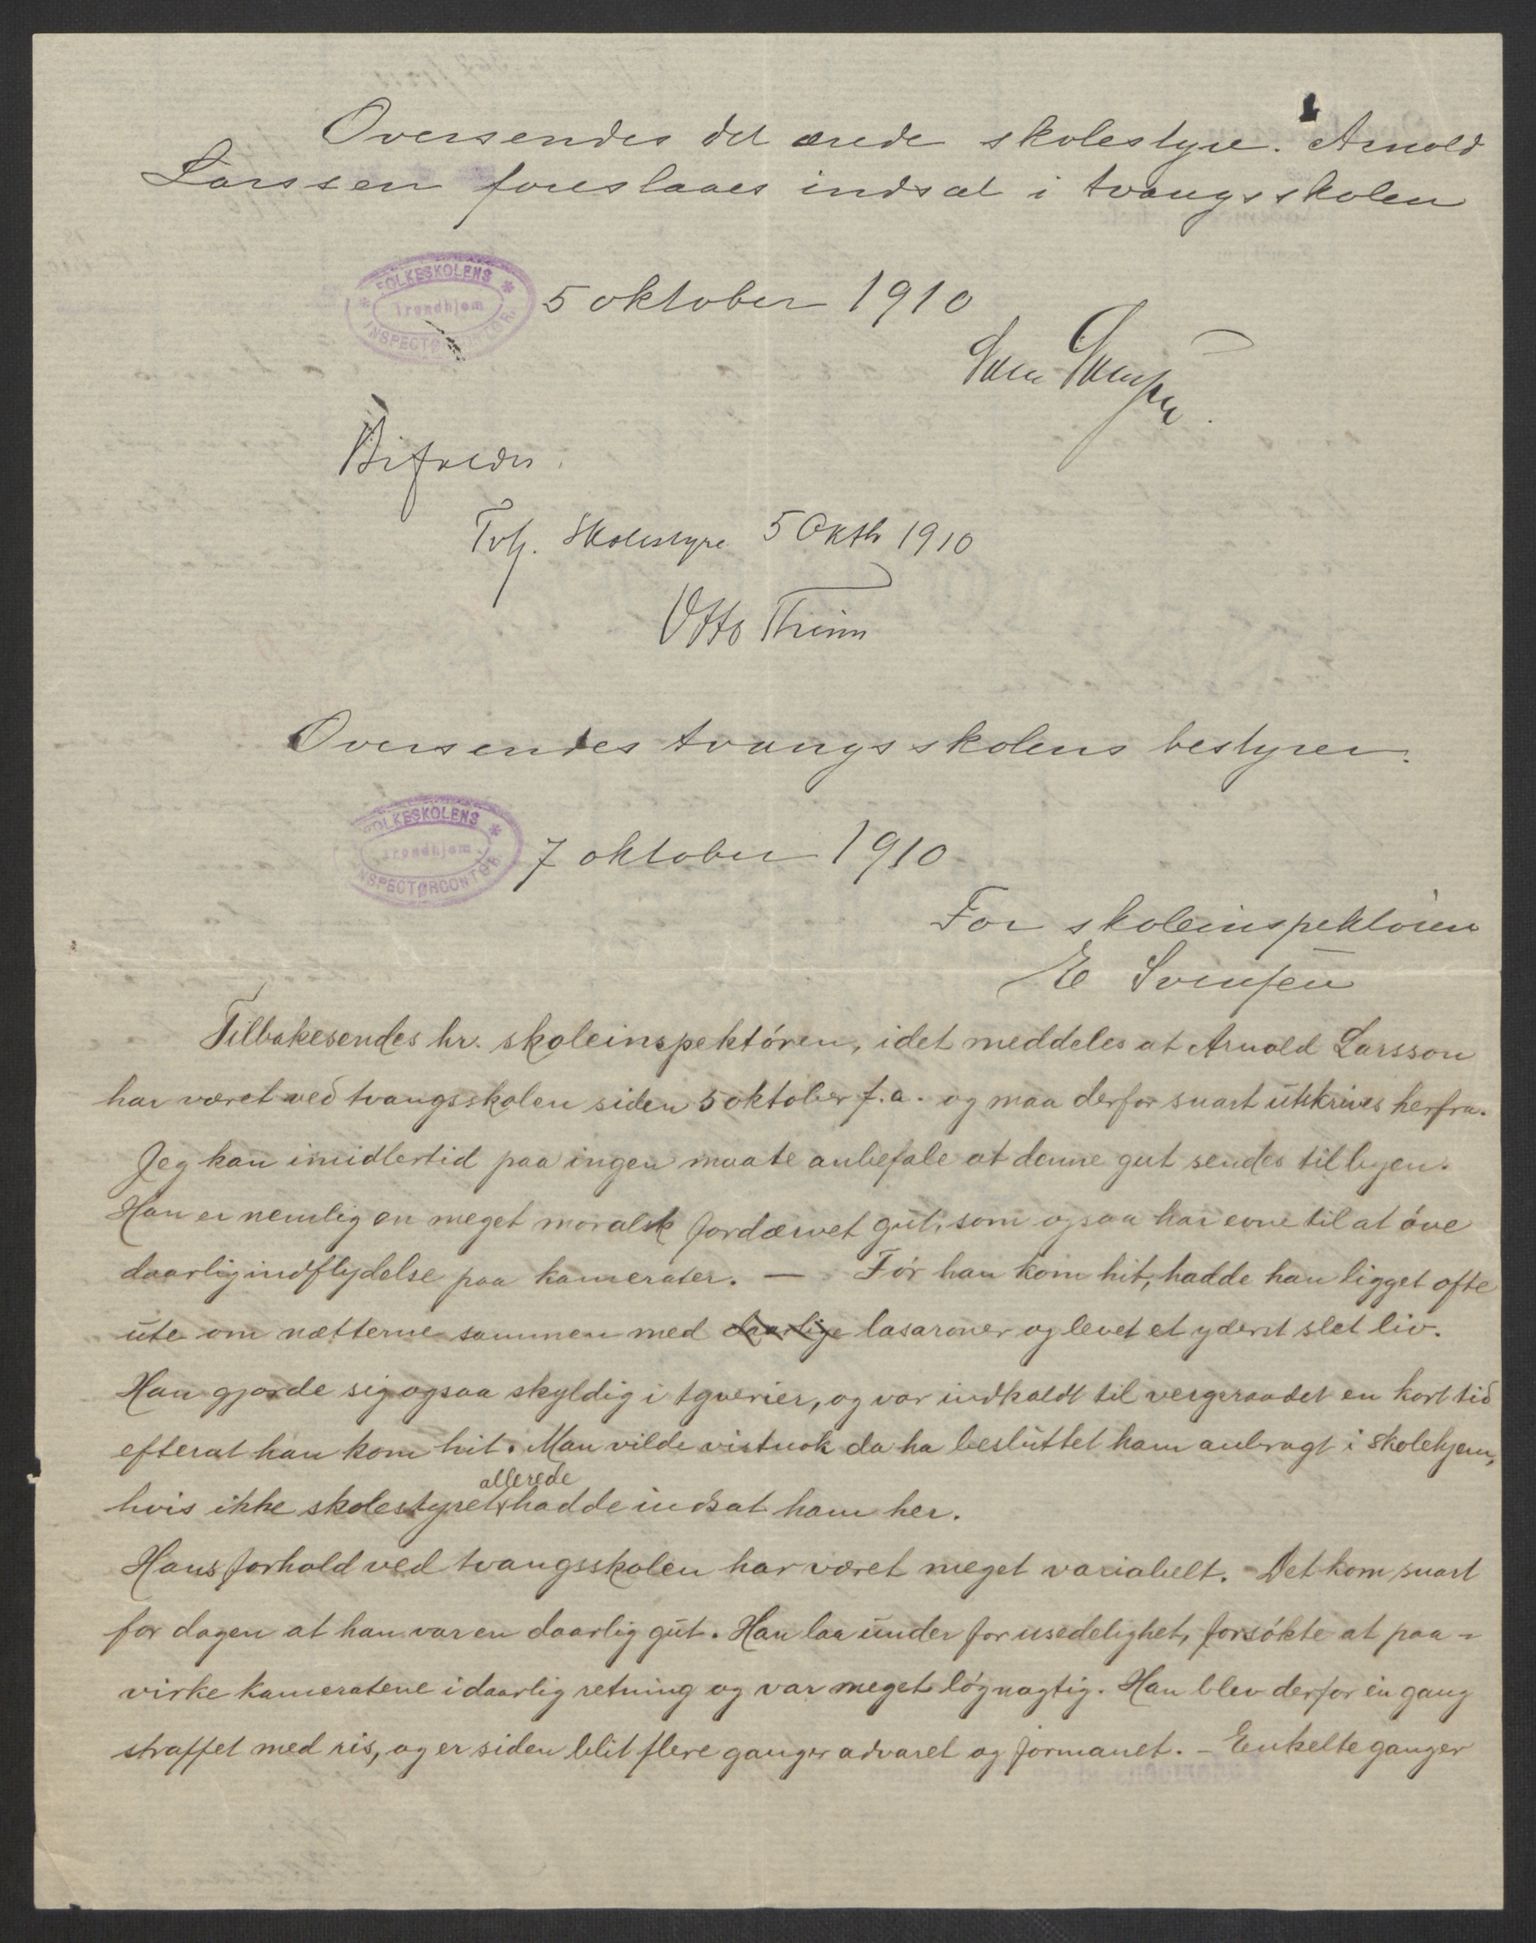 Oversendes det ærede skolestyre. Arnold
Larssen foreslaaes indsat i tvangsskolen
FOLKESKOLENS
Trondhjem
INSPECTØRCONTOR
5 oktober 1910
Bifaldes.
Trhj. Skolestyre 5 Oktbr 1910
Otto Thrim
Oversendes tvangsskolens bestyrer.
FOLKESKOLENS
Trondhjem
INSPECTØRCONTOR
7 oktober 1910
For skoleinspektören
E Svensen
Tilbakesendes hr. skoleinspektören, idet meddeles at Arnold Larsson
har været ved tvangsskolen siden 5 oktober f.a. og maa derfor snart utskrives herfra.
Jeg kan imidlertid paa ingen maate anbefale at denne gut sendes til byen.
Han er nemlig en meget moralsk fordærvet gut, som ogsaa har evne til at öve
daarlig indflydelse paa kamerater. — Før han kom hit, hadde han ligget ofte
ute om nætterne sammen med daarlige lasaroner og levet et yderst slet liv.
Han gjorde sig ogsaa skyldig i tyverier, og var indkaldt til vergeraadet en kort tid
efterat han kom hit. Man vilde vistnok da ha besluttet ham anbragt i skolehjem,
hvis ikke skolestyret allerede hadde indsat ham her.
Hans forhold ved tvangsskolen har været meget variabelt. - Det kom snart
for dagen at han var en daarlig gut. Han laa under for usedelighet, forsökte at paa-
virke kameratene i daarlig retning og var meget løgnagtig. Han blev derfor én gang
straffet med ris, og er siden blit flere ganger advaret og formanet. - Enkelte ganger